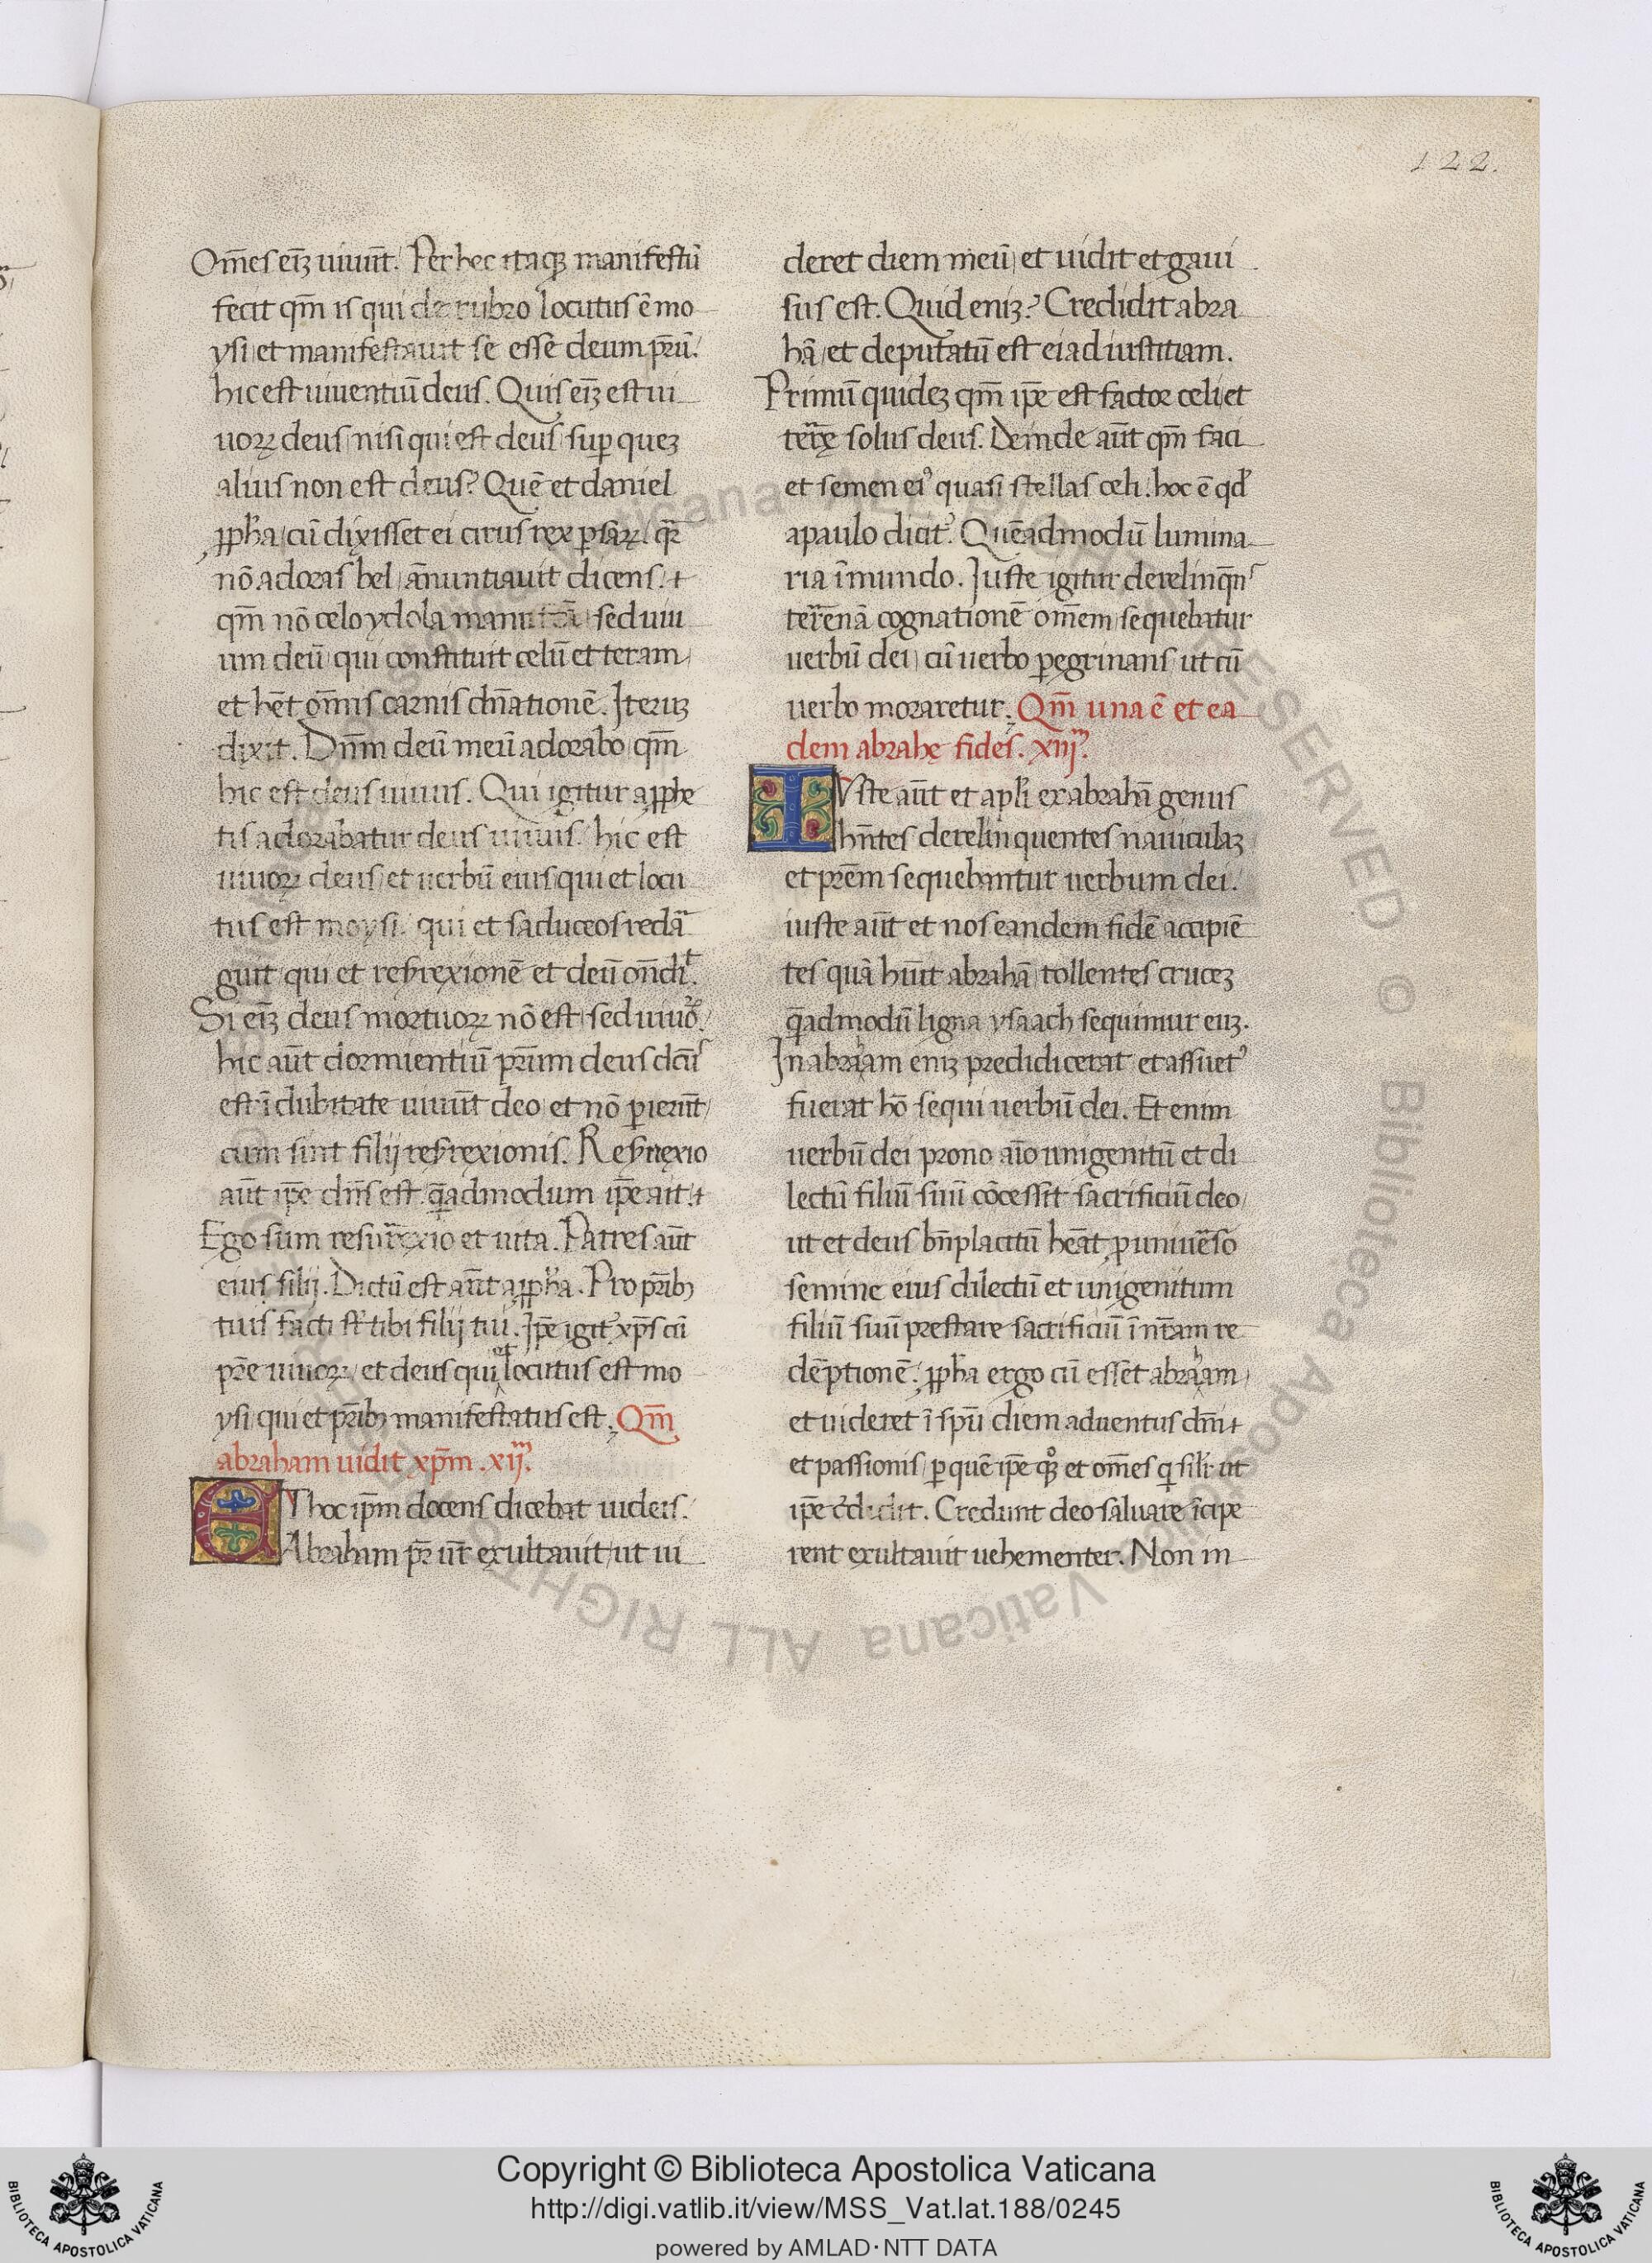 122.
Om̄es ei̅ꝫ uiuūt. Per hec itaqꝫ manifestū
fecit qm̄ is qui de rubro locutus ē mo
ysi et manifestauit se esse deum pr̄ū.
hic est uiuentiū deus. Quis ei̅ꝫ est ui
uoꝝ deus nisi qui est deus sup̲ queꝫ
alius non est deus? Quē et daniel
ꝓph̄a cū dixisset ei cirus rex ꝑsaꝝ. qr̄
nō adoras bel ānuntiauit dicens.
qm̄ nō celo ydola manu sed uiu
um deū qui constituit celū et teram
et hēt om̄nis carnis dn̄ationē. Iteruꝫ
dixit. Dn̄m deū meū adorabo qm̄
hic est deus uiuus. Qui igitur a ꝓphe
tis adorabatur deus uiuus. hic est
uiuoꝝ deus et uerbū eius qui et locu
tus est moysi. qui et saduceos redar
guit qui et resr̄rexionē et deū on̄dit.
Si ei̅ꝫ deus mortuoꝝ nō est sed uiuoꝝ.
hic aūt dormientiū pr̄um deus dcūs
est īdubitate uiuūt deo et nō ꝑierūt
cum sint filij resr̄rexionis. Resr̄rexio
aūt ip̄e dn̄s est q̄admodum ip̄e ait.
Ego sum resur̄rexio et uita. Patres aūt
eius filij. Dictū est aūt a ꝓph̄a. Pro pr̄ibꝫ
tuis facti st̄ tibi filij tui. Ip̄e igit᷑ xp̄s cū
pr̄e uiuoꝝ et deus qui et locutus est mo
ysi qui et pr̄ibꝫ manifestatus est. Qm̄
abraham uidit xp̄m .xijᵐ.
Et hoc ip̄m docens dicebat iudeis.
Abraham pr̄ ur̄t exultauit ut ui
deret diem meū et uidit et gaui
sus est. Quid eniꝫ? Credidit abra
hā et deputatū est ei ad iustitiam.
Primū quideꝫ qm̄ ip̄e est factor celi et
ter̄rę solus deus. Deinde aūt qm̄ faci
et semen eiꝰ quasi stellas celi. hoc ē qd̄
a paulo dicit᷑. Quēadmodū lumina
ria ī mundo. Iuste igitur derelinq̄ns
ter̄renā cognationē om̄em sequebatur
uerbū dei cū uerbo ꝑegrinans ut cū
uerbo moraretur. Qm̄ una ē et ea
dem abrahę fides. xiijᵐ.
Iuste aūt et apl̄i ex abrahā genus
hn̄tes derelinquentes nauiculaꝫ
et pr̄em sequebantur uerbum dei.
iuste aūt et nos eandem fidē accipiē
tes quā hūit abrahā tollentes cruceꝫ
q̄admodū ligna ysaach sequimur euꝫ.
In abraham eniꝫ predidicerat et assuetꝰ
fuerat hō sequi uerbū dei. Et enim
uerbū dei prono aīo unigenitū et di
lectū filiū suū cōcessit sacrificiū deo
ut et deus bn̄placitū heāt ꝓ uniuērso
semine eius dilectū et unigenitum
filiū suū prestare sacrificiū ī nr̄am re
dēptionē. ꝓph̄a ergo cū esset abraham
et uideret ī spū diem aduentus dn̄i
et passionis ꝑ quē ip̄e qꝫ et om̄es q̄ silr̄ ut
ip̄e credidit. Credunt deo saluare īcipe
rent exultauit uehementer. Non in
Copyright © Biblioteca Apostolica Vaticana
http://digi.vatlib.it/view/MSS_Vat.lat.188/0245
powered by AMLAD·NTT DATA
BIBLIOTECA APOSTOLICA VATICANA
BIBLIOTECA APOSTOLICA VATICANA